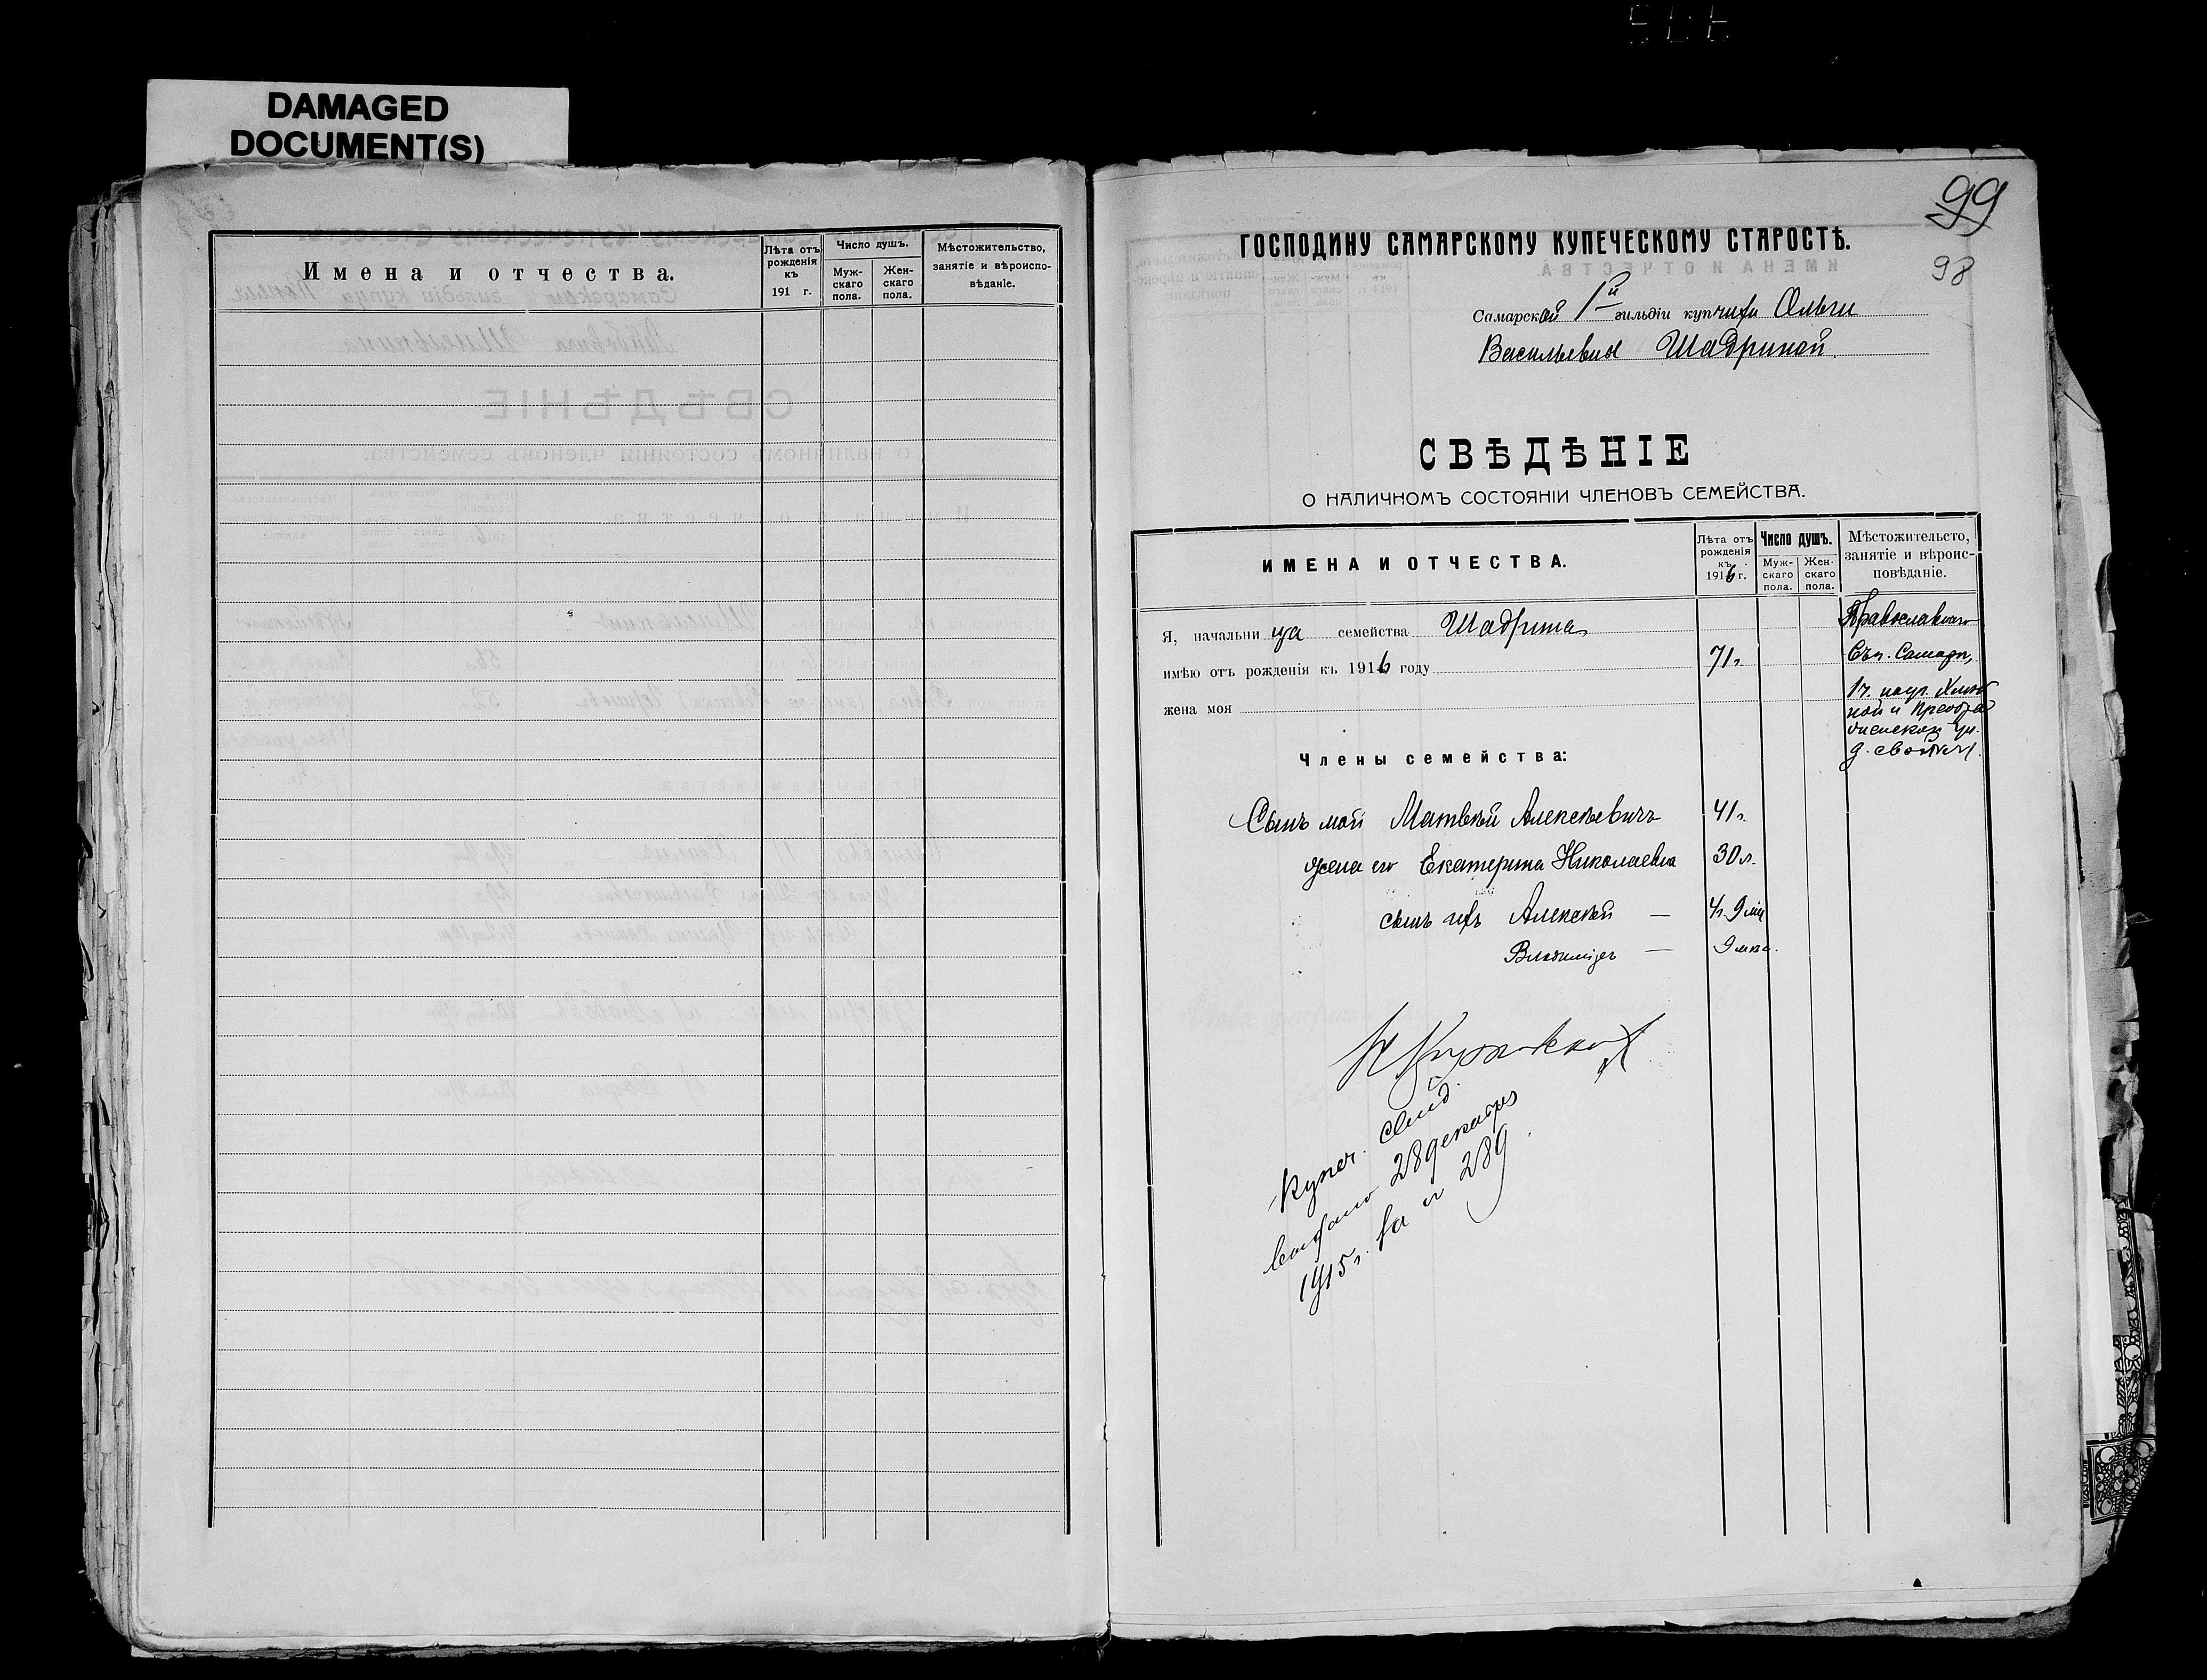 DAMAGED
DOCUMENT(S)
Имена и отчества.
Лѣта отъ рожденія къ 191 г.
Число душъ.
Муж-
скаго
пола.
Жен-
скаго
пола.
Мѣстожительство,
занятіе и вѣроиспо-
вѣданіе.
99
98
ГОСПОДИНУ САМАРСКОМУ КУПЕЧЕСКОМУ СТАРОСТѢ.
Самарской 1й гильдіи купчихи Ольги
Васильевны Шадриной.
СВѢДѢНІЕ
О НАЛИЧНОМЪ СОСТОЯНІИ ЧЛЕНОВЪ СЕМЕЙСТВА.
ИМЕНА И ОТЧЕСТВА.
Лѣта отъ
рожденія
къ
1916 г.
Число душъ.
Муж-
скаго
пола.
Жен-
скаго
пола.
Мѣстожительсто,
занятіе и вѣроис-
повѣданіе.
Я, начальница семейства Шадрина
Православнаго
имѣю отъ рожденія къ 1916 году 71 г.
Самары,
жена моя
1 ч. уг.
ной и Преобра
женской ул.
д.
Члены семейства:
Сынъ мой Матвѣй Алексѣевичъ 41 г.
жена его Екатерина Николаевна 30 л.
сынъ ихъ Алексѣй — 4 г. 9 мѣс
Владиміръ — 9 мѣс.
Купеч. свид.
выдано 28 декабря
1915 г. за № 289